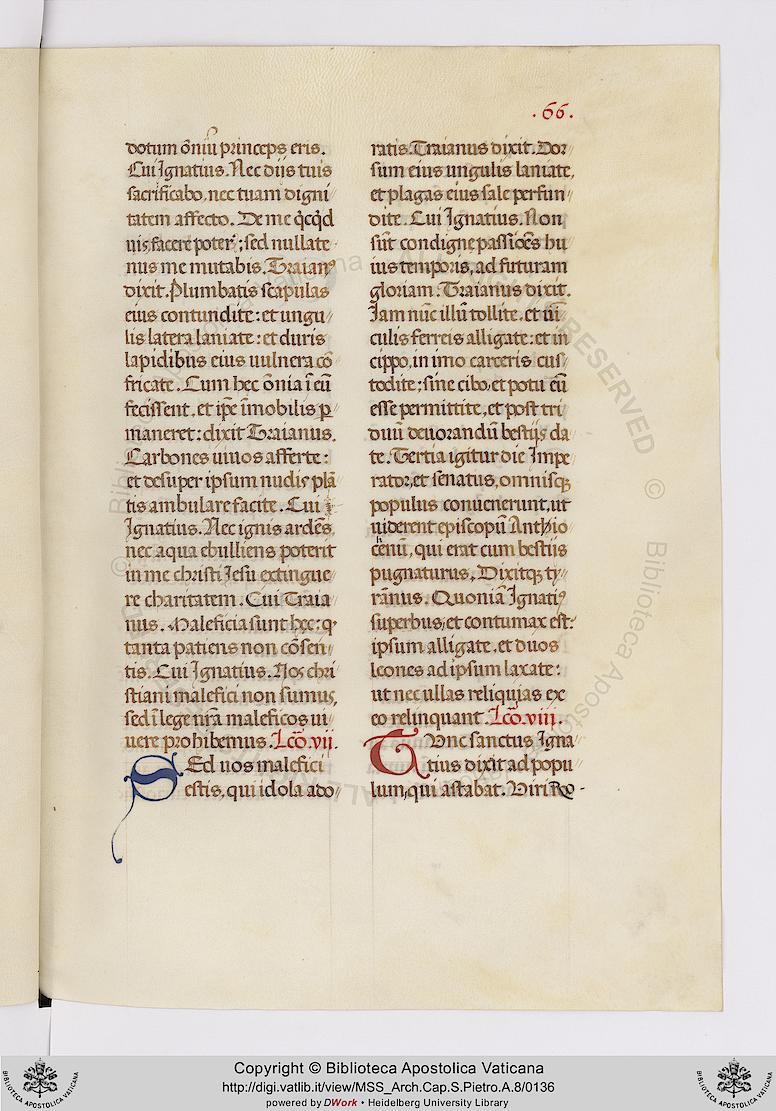 .66.
dotum o̅niu̅ princeps eris.
Cui Ignatius. Nec diis tuis
sacrificabo, nec tuam digni
tatem affecto. De me q̇cq̇d
uis, facere poter̛; sed nullate
nus me mutabis. Traianꝰ
dixit. Plumbatis scapulas
eius contundite: et ungu
lis latera laniate: et duris
lapidibus eius uulnera co̅
fricate. Cum hec o̅nia i̅ eu̅
fecissent, et ip̅e i̅mobilis ꝑ
maneret: dixit Traianus.
Carbones uiuos afferte:
et desuper ipsum nudis pla̅
tis ambulare facite. Cui
Ignatius. Nec ignis arde̅s,
nec aqua ebulliens poterit
in me christi Jesu extingue
re charitatem. Cui Traia
nus. Maleficia sunt hec: ꝙ
tanta patiens non co̅sen
tis. Cui Ignatius. Nos chri
stiani malefici non sumus,
sed i̅ lege nr̅a maleficos ui
uere prohibemus. Lc̅o. vij.
SEd uos malefici
estis, qui idola ado
ratis. Traianus dixit. Dor
sum eius ungulis laniate,
et plagas eius sale perfun
dite. Cui Ignatius. Non
su̅t condigne passio̅es hu
ius temporis, ad futuram
gloriam: Traianus dixit.
Jam nu̅c illu̅ tollite, et ui̅
culis ferreis alligate: et in
cippo, in imo carceris cus
todite; sine cibo, et potu eu̅
esse permittite, et post tri
duu̅ deuorandu̅ bestijs da
te. Tertia igitur die Impe
rator, et senatus, omnisqꝫ
populus conuenerunt, ut
uiderent episcopu̅ Anthio
cenu̅, qui erat cum bestiis
pugnaturus, Dixitqꝫ ty
ra̅nus. Quonia̅ Ignatiꝰ
superbus, et contumax est:
ipsum alligate, et duos
leones ad ipsum laxate:
ut nec ullas reliquias ex
eo relinquant. Lc̅o. viii.
TVnc sanctus Igna
tius dixit ad popu
lum, qui astabat. Viri Ro
© Biblioteca Apostolica Vaticana
ALL RIGHTS RESERVED
Copyright © Biblioteca Apostolica Vaticana
http://digi.vatlib.it/view/MSS_Arch.Cap.S.Pietro.A.8/0136
powered by DWork • Heidelberg University Library
BIBLIOTECA APOSTOLICA VATICANA
BIBLIOTECA APOSTOLICA VATICANA